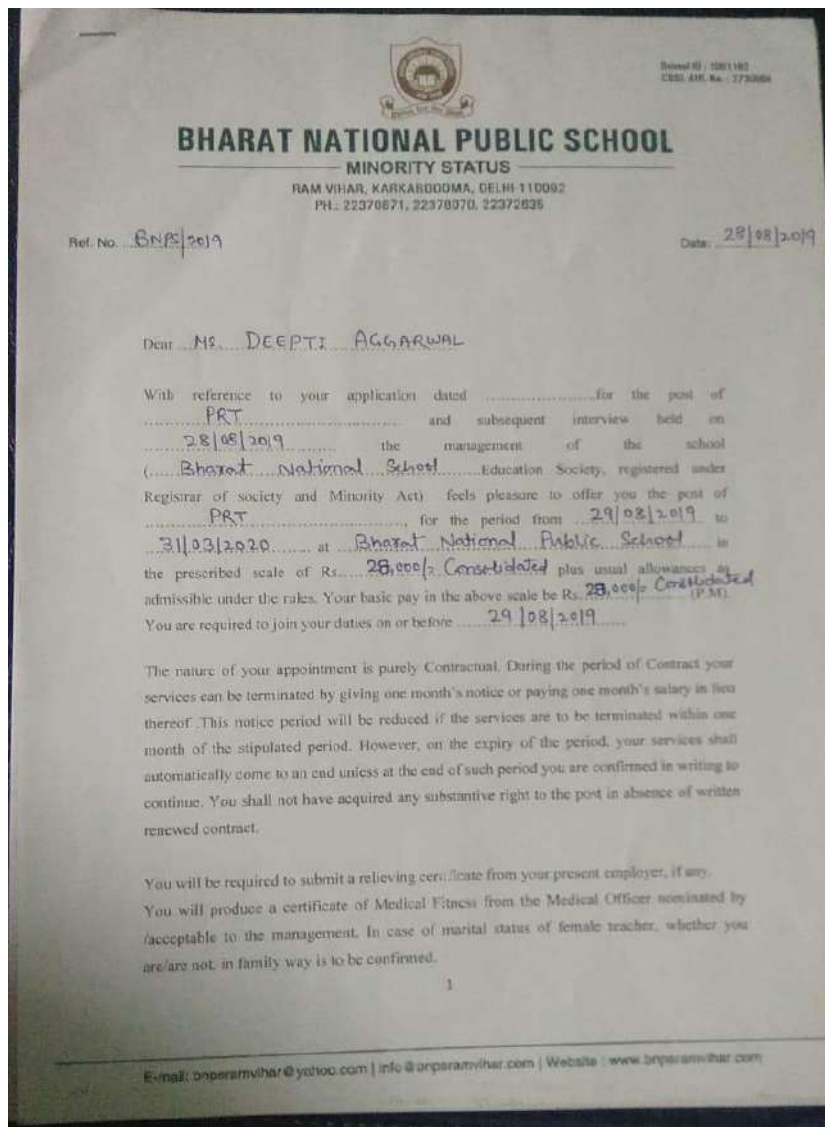 BHARAT NATIONAL PUBLIC SCHOOL
MINORITY STATUS
RAM VIHAR, KARKARDOOMA, DELHI-110092
PH.: 22370671, 22378070, 22372635
Ref. No. BNPS/2019
Date: 28/08/2019
Dear Ms. DEEPTI AGGARWAL
With reference to your application dated ........................for the post of
............PRT.............................. and subsequent interview held on
........28/08/2019.......... the management of the school
(.......Bharat National School........Education Society, registered under
Registrar of society and Minority Act) feels pleasure to offer you the post of
............PRT............................, for the period from ...29/08/2019... to
...31/03/2020........ at ...Bharat National Public School..... in
the prescribed scale of Rs.....28,000/= Consolidated plus usual allowances as
admissible under the rules. Your basic pay in the above scale be Rs. 28,000/= Consolidated (P.M).
You are required to join your duties on or before ......29/08/2019......
The nature of your appointment is purely Contractual. During the period of Contract your
services can be terminated by giving one month's notice or paying one month's salary in lieu
thereof .This notice period will be reduced if the services are to be terminated within one
month of the stipulated period. However, on the expiry of the period, your services shall
automatically come to an end unless at the end of such period you are confirmed in writing to
continue. You shall not have acquired any substantive right to the post in absence of written
renewed contract.
You will be required to submit a relieving certificate from your present employer, if any.
You will produce a certificate of Medical Fitness from the Medical Officer nominated by
/acceptable to the management. In case of marital status of female teacher, whether you
are/are not, in family way is to be confirmed.
1
E-mail: bnpsramvihar@yahoo.com | info@bnpsramvihar.com | Website : www.bnpsramvihar.com